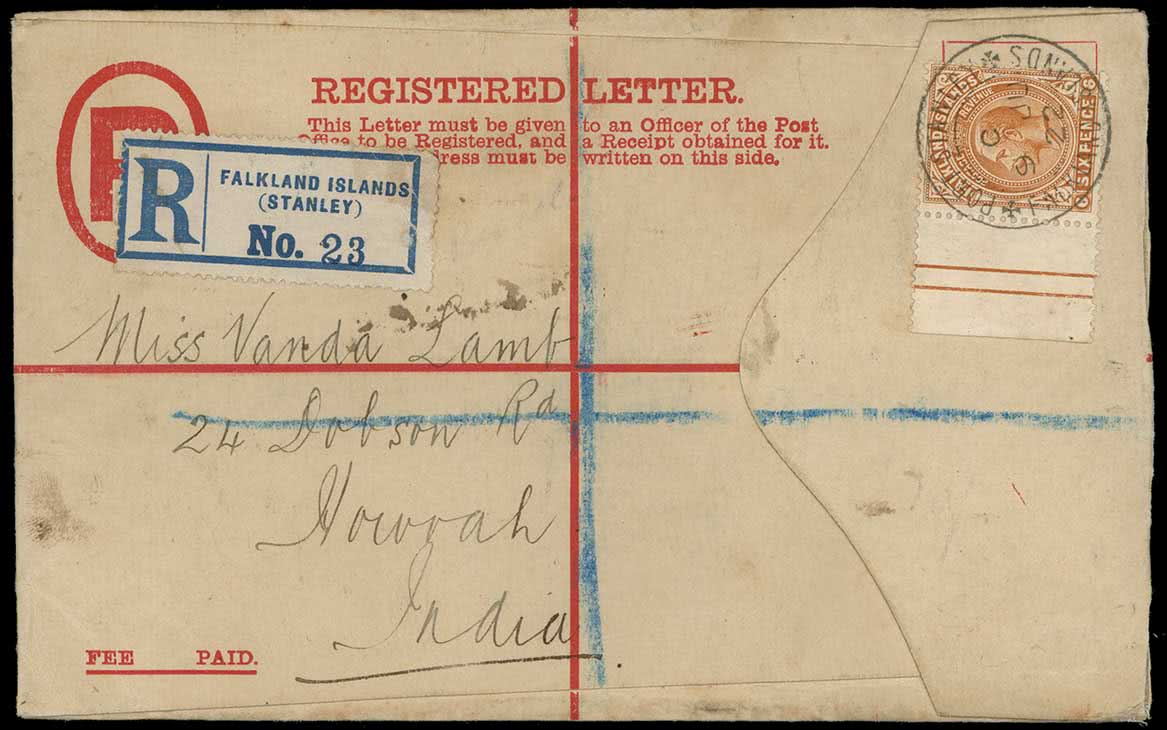 REGISTERED LETTER.
This Letter must be given to an Officer of the Post
Office to be Registered, and a Receipt obtained for it.
must be written on this side.
R
FALKLAND ISLANDS
(STANLEY)
No. 23
REVENUE
SIX PENCE
FALKLAND ISLANDS
C
22
Miss Vanda Lamb
24 Dobson Rd
Howrah
India
FEE PAID.